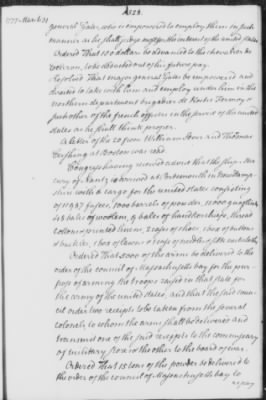 1777 March 31
general Gates, who is empowered to employ them in such
manner as he shall judge most for the interest of the united states
Ordered That 120 dollars be advanced to the chevalier de
to be deducted out of his future pay.
Resolved That major general Gates be empowered and
directed to take with him and employ under him in the
northern department brigadier de Roche Fermoy &
such other of the french officers in the pay of the united
states as he shall think proper.
A letter of the 20 from William Story and Thomas
Cushing at Boston was read
Congress having received advice that the ship Mer
cury of Nantz is arrived at Portsmouth in New hamp-
shire with a cargo for the united states consisting
of 11987 fusees, 1000 barrels of powder, 11000 gunflints
48 bales of woollens, 9 bales of handkerchiefs, thread
cottons & printed linens, 2 cases of shoes, 1 box of buttons
& buckles, 1 box of lawns & caps of needles, silk neckcloths
Ordered That 5000 of the arms be delivered to the
order of the council of Massachusetts bay for the pur
pose of arming the troops raised in that state for
the army of the united states, and that the said coun
cil order two receipts to be taken from the several
colonels to whom the arms shall be delivered and
transmit one of the said receipts to the commissary
of military stores & the other to the board of war.
Ordered That 15 tons of the powder be delivered to
the order of the council of Massachusetts bay to
repay